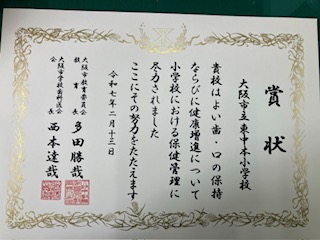 賞状
大阪市立東中本小学校
貴校はよい歯・口の保持
ならびに健康増進について
小学校における保健管理に
尽力されました
ここにその努力をたたえます
令和七年二月十三日
大阪市教育委員会
教育長 多田勝哉
大阪市学校歯科医会
会長 西本達哉